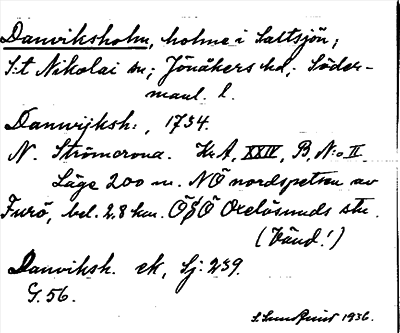 Danviksholm, holme i Saltsjön;
S:t Nikolai sn; Jönåkers hd; Söder-
manl. l.
Danwijksh:, 1734.
N. Strömcrona. Kr.A, XXIV, B, N:o II
Läge 200 m. NÖ nordspetsen av
Furö, bel. 2,8 km. ÖSÖ Oxelösunds stn.
(Vänd!)
Danviksh. ek, Sj. 239.
G. 56.
1936.